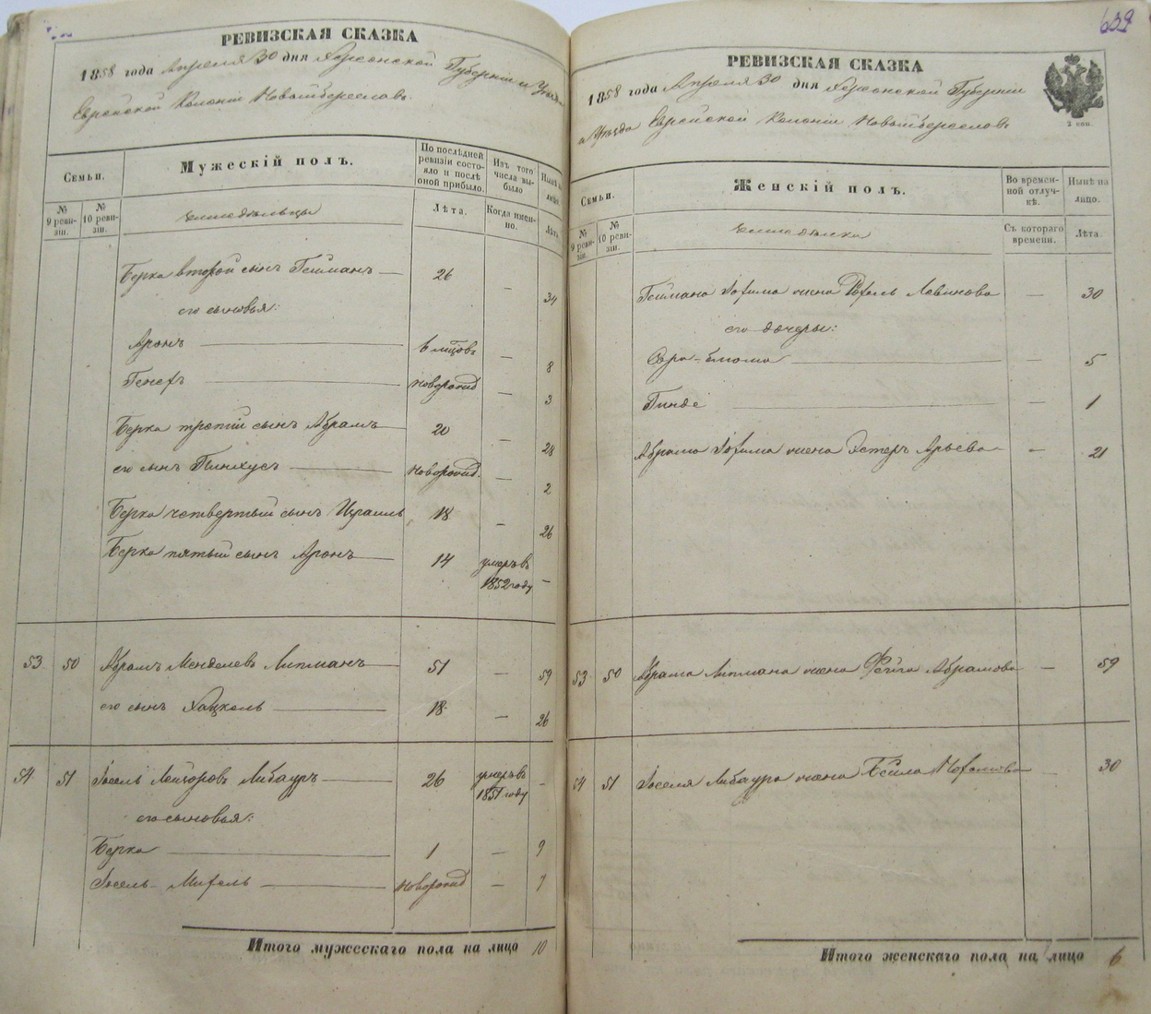 РЕВИЗСКАЯ СКАЗКА
1858 года Апреля 30 дня Херсонской Губернии и Уезда
Еврейской Колонии Новыйбереслав.
Семьи.
Мужескій полъ.
По послѣдней ревизіи состояло и послѣ оной прибыло.
Изъ того числа выбыло
Нынѣ на лицо.
№ 9 ревизіи.
№ 10 ревизіи.
Лѣта.
Когда именно.
Лѣта.
Берка второй сынъ Гейманъ 26 — 34
его сыновья:
Аронъ — 8
новорожд — 3
Берка третій сынъ Абрамъ 20 — 28
его сынъ Пинхусъ новорожд. — 2
Берка четвертый сынъ Израиль 18 — 26
Берка пятый сынъ Аронъ 14 умеръ въ 1852 году —
53 50 Абрамъ Менделевъ Липманъ 51 — 59
его сынъ Хацкель 18 — 26
54 51 Іосель Лейзоровъ Либауръ 26 умеръ въ 1851 году -
его сыновья:
Берка 1 — 9
Іосель новорожд — 7
Итого мужескаго пола на лицо 10
639
РЕВИЗСКАЯ СКАЗКА
1858 года Апреля 30 дня Херсонской Губерніи
и Уезда Еврейской Колоніи Новыйбереславъ
2 коп.
Семьи.
Женскій полъ.
Во временной отлучкѣ.
Нынѣ на лицо.
№ 9 ревизіи.
№ 10 ревизіи.
Съ котораго времени.
Лѣта.
Геймана жена Левинова — 30
его дочеры:
блюма — 5
Гинде — 1
Абрама жена Эстеръ Арьева — 21
53 50 Абрама Липмана жена Фейга Абрамова — 59
54 51 Іоселя Либаура жена — 30
Итого женскаго пола на лицо 6